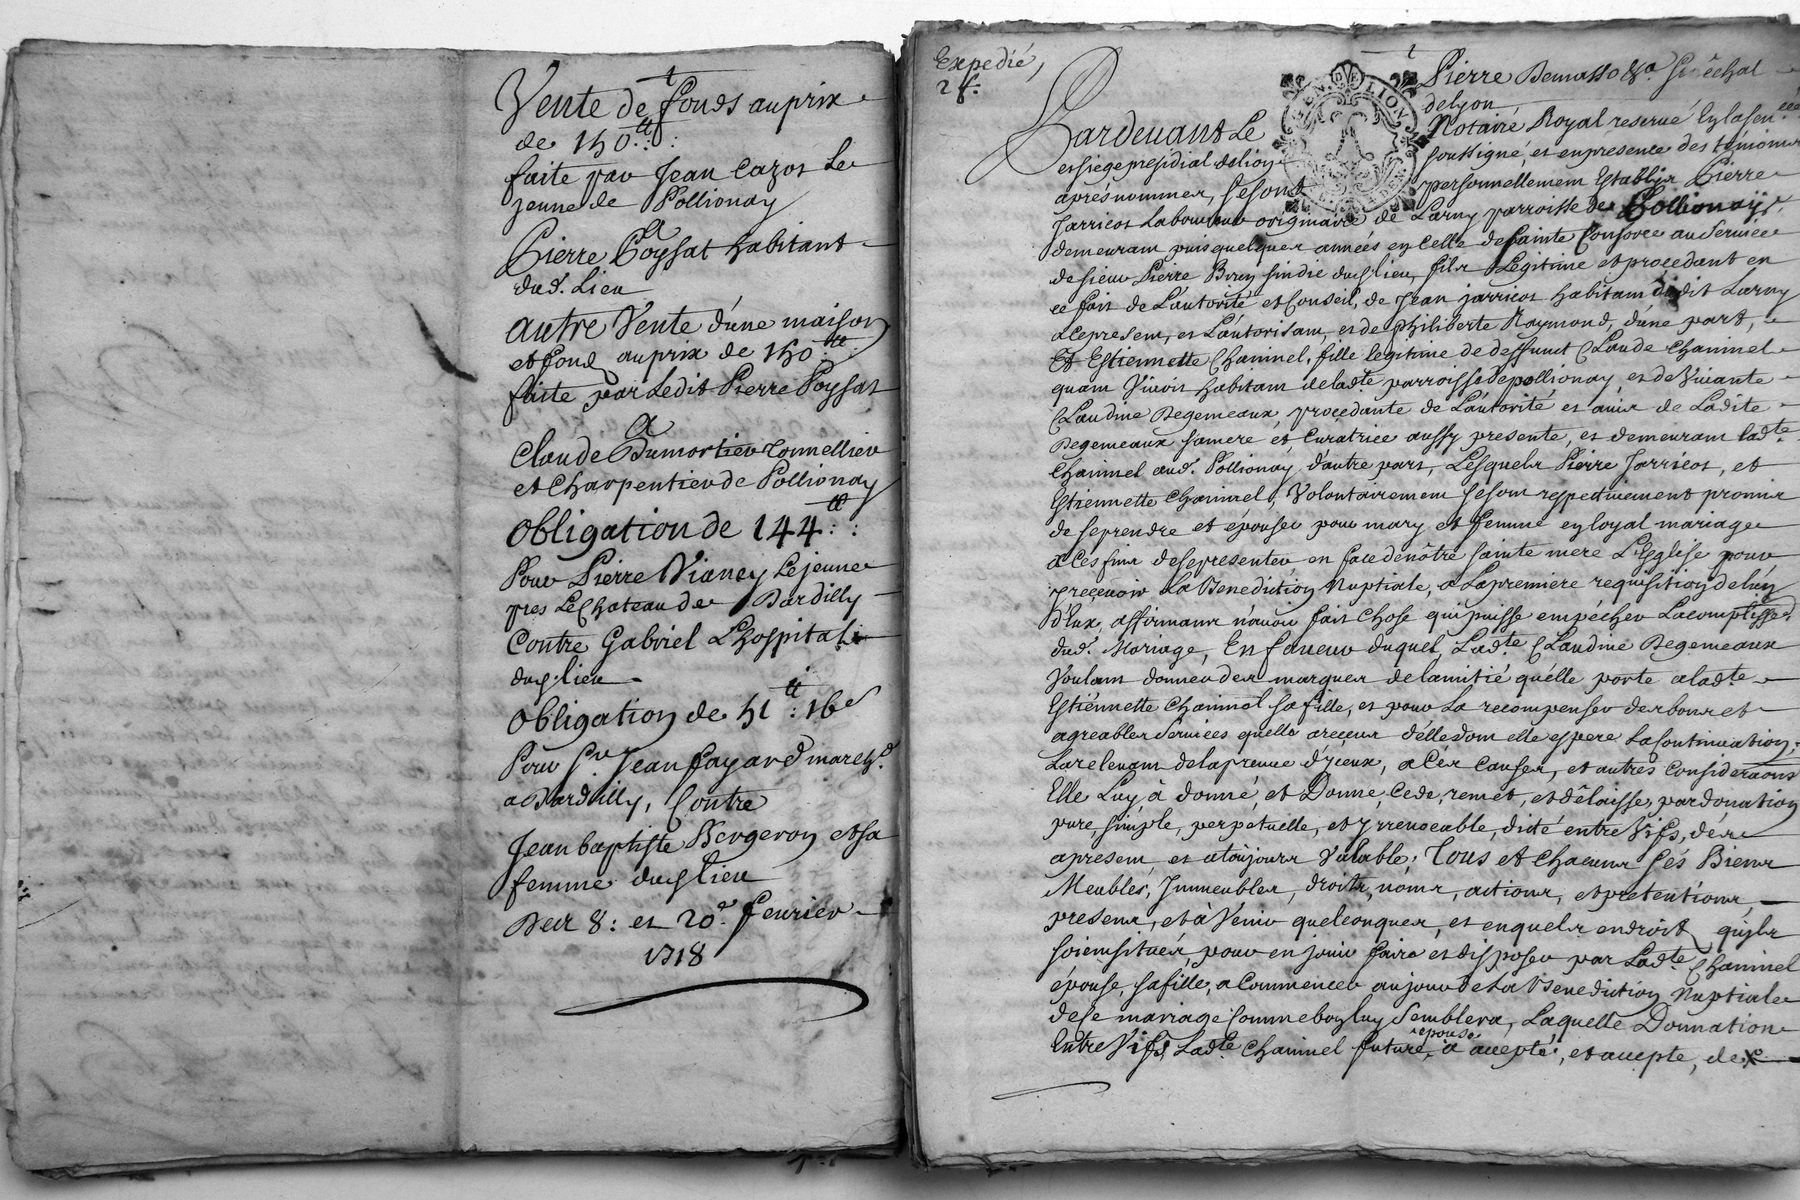 Vente de fonds au prix
de 150.tt
faite par Jean Cazot Le
jeune de Pollionay
A
Pierre Poysat habitant
dud. Lieu
autre Vente d'une maison
et fond au prix de 150.tt
faite par Ledit Pierre Poysat
A
Claude Dumortier Tonnellier
et Charpentier de Pollionay
Obligation de 144.tt
Pour Pierre Vianey Lejeune
pres Le Chateau de Dardilly
Contre Gabriel L'hospital
dud. lieu
Obligation de 51.tt: 16s
Pour Sr. Jean fayard march.d
a Dardilly, Contre
Jean baptiste Bergeron et sa
femme dud. lieu
Des 8: et 20e. fevrier
1718
Expedié,
2 f.
Pierre Demasso &a Senechal
de lyon
GEN. DE LION
Pardevant Le Notaire Royal reservé En la sen.ée
et siege presidial de lion soussigné, et en presence des témoins
aprés nommes, se sont personnellement Establis Pierre
Jarricot Laboureur originaire de Larny parroisse de Pollionay,
demeurant puis quelques années en celle de Sainte Consorce au Service
de sieur Pierre Biny sindic dud. lieu, fils Legitime et procedant en
ce fait de L'autorité et Conseil, de Jean jarricot habitant dudit Larny
a ce present, et L'autorisant, et de Philiberte Raymond, d'une part,
Et Estiennette Chaninel, fille legitime de deffunct Claude Chaninel
quant Vivoit habitant de lad.te parroisse de pollionay, et de Vivante
Claudine Degemeaux, procedante de L'autorité et avis de Ladite
Degemeaux sa mere et Curatrice aussy presente, et demeurant lad.te
Chaninel aud. Pollionay, d'autre part, Lesquels Pierre Jarricot, et
Estiennette Chaninel, Volontairement se sont respectivement promis
de se prendre et épouser pour mary et femme en loyal mariage
a Ces fins de se presenter en face de nôtre sainte mere L'Esglise pour
y recevoir La Benediction Nuptiale, a La premiere requisition de l'un
d'Eux, affirmant n'avoir fait Chose qui puisse empécher Lacomplisse.t
dud. Mariage, En faveur duquel, Lad.te Claudine Degemeaux
Voulant donner des marques de lamitié qu'elle porte a lad.te
Estiennette Chaninel sa fille, et pour La recompenser des bons et
agreables Services quelle a reçeus d'elle dont elle espere La Continuation,
La relevant de la preuve d'yceux, a Cés Causes, et autres Considerations
Elle Luy à donné, et Donne, Cede, remet, et délaisse, par donation
pure, simple, perpetuelle, et yrrevocable, dite entre Vifs, dés
apresent, et atoujours Valable; Tous et Chacuns Sés Biens
Meubles, Immeubles, droits, noms, actions, et pretentions,
presens, et à Venir quelconques, et en quels endroits quyls
soient situés, pour en jouir faire et disposer par Lad.te Chaninel
épouse, sa fille, a Commencer au jour de La Benediction Nuptiale
de Ce mariage Comme bon luy Semblera, Laquelle Donnation
Entre Vifs, Lad.te Chaninel future, épouse a accepté, et accepte, de